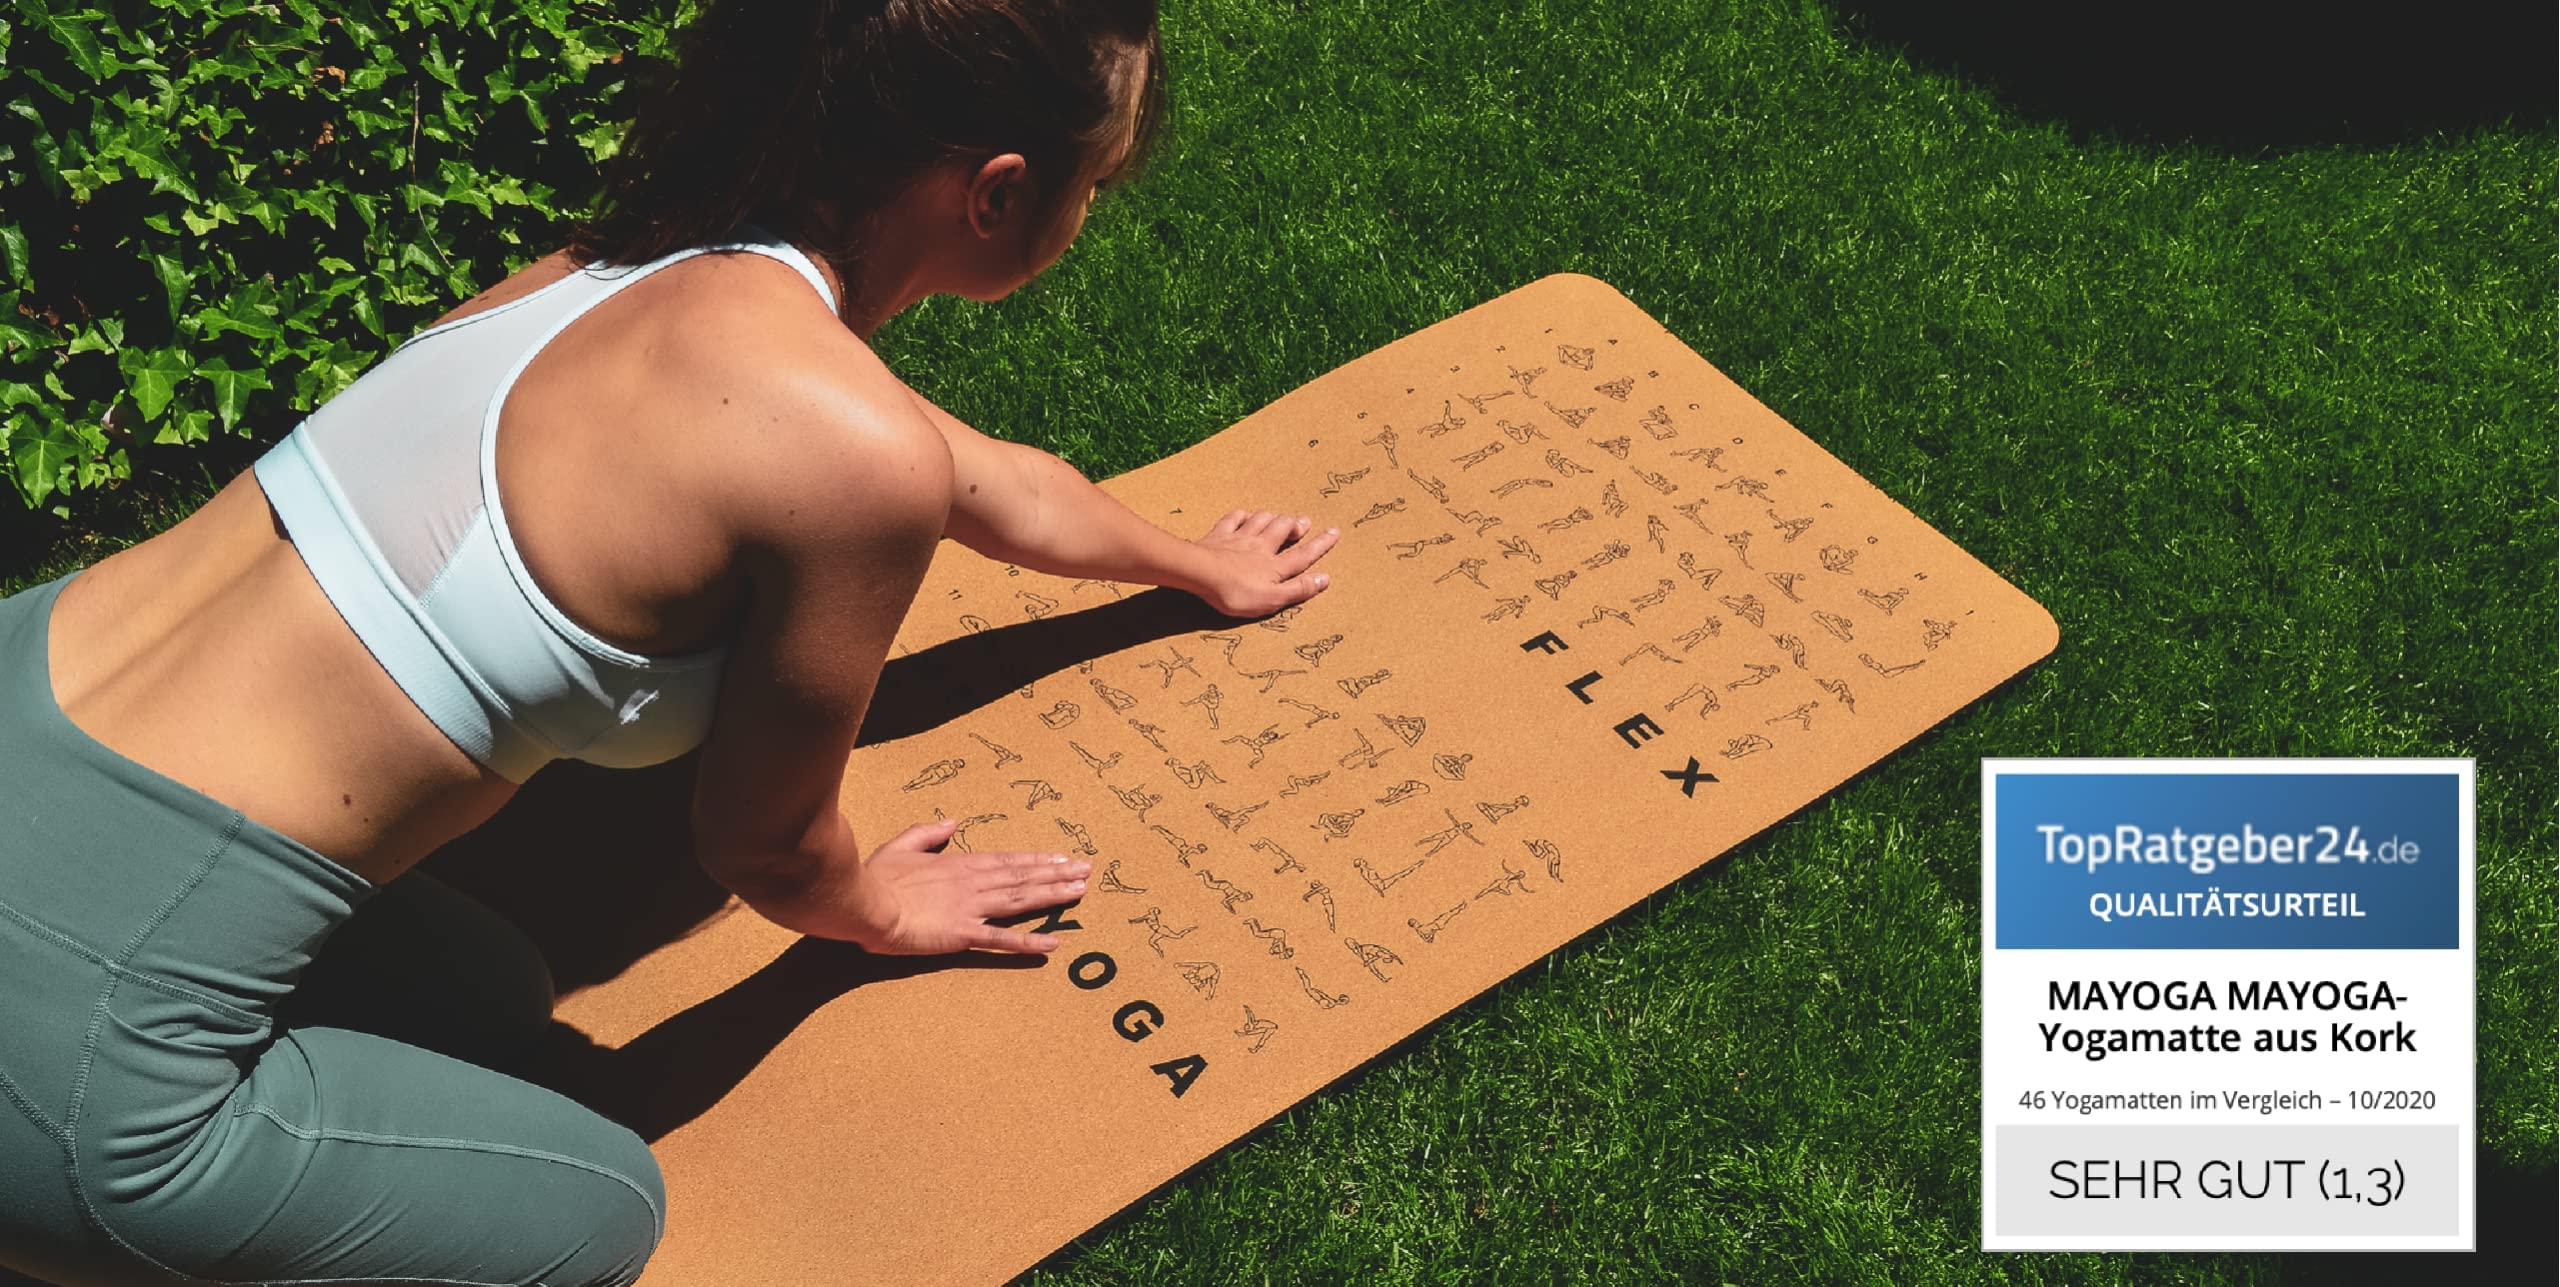 1
2
3
4
5
6
7
10
11
A
B
C
D
E
F
G
H
I
FLEX
YOGA
TopRatgeber24.de
QUALITÄTSURTEIL
MAYOGA MAYOGA-
Yogamatte aus Kork
46 Yogamatten im Vergleich – 10/2020
SEHR GUT (1,3)